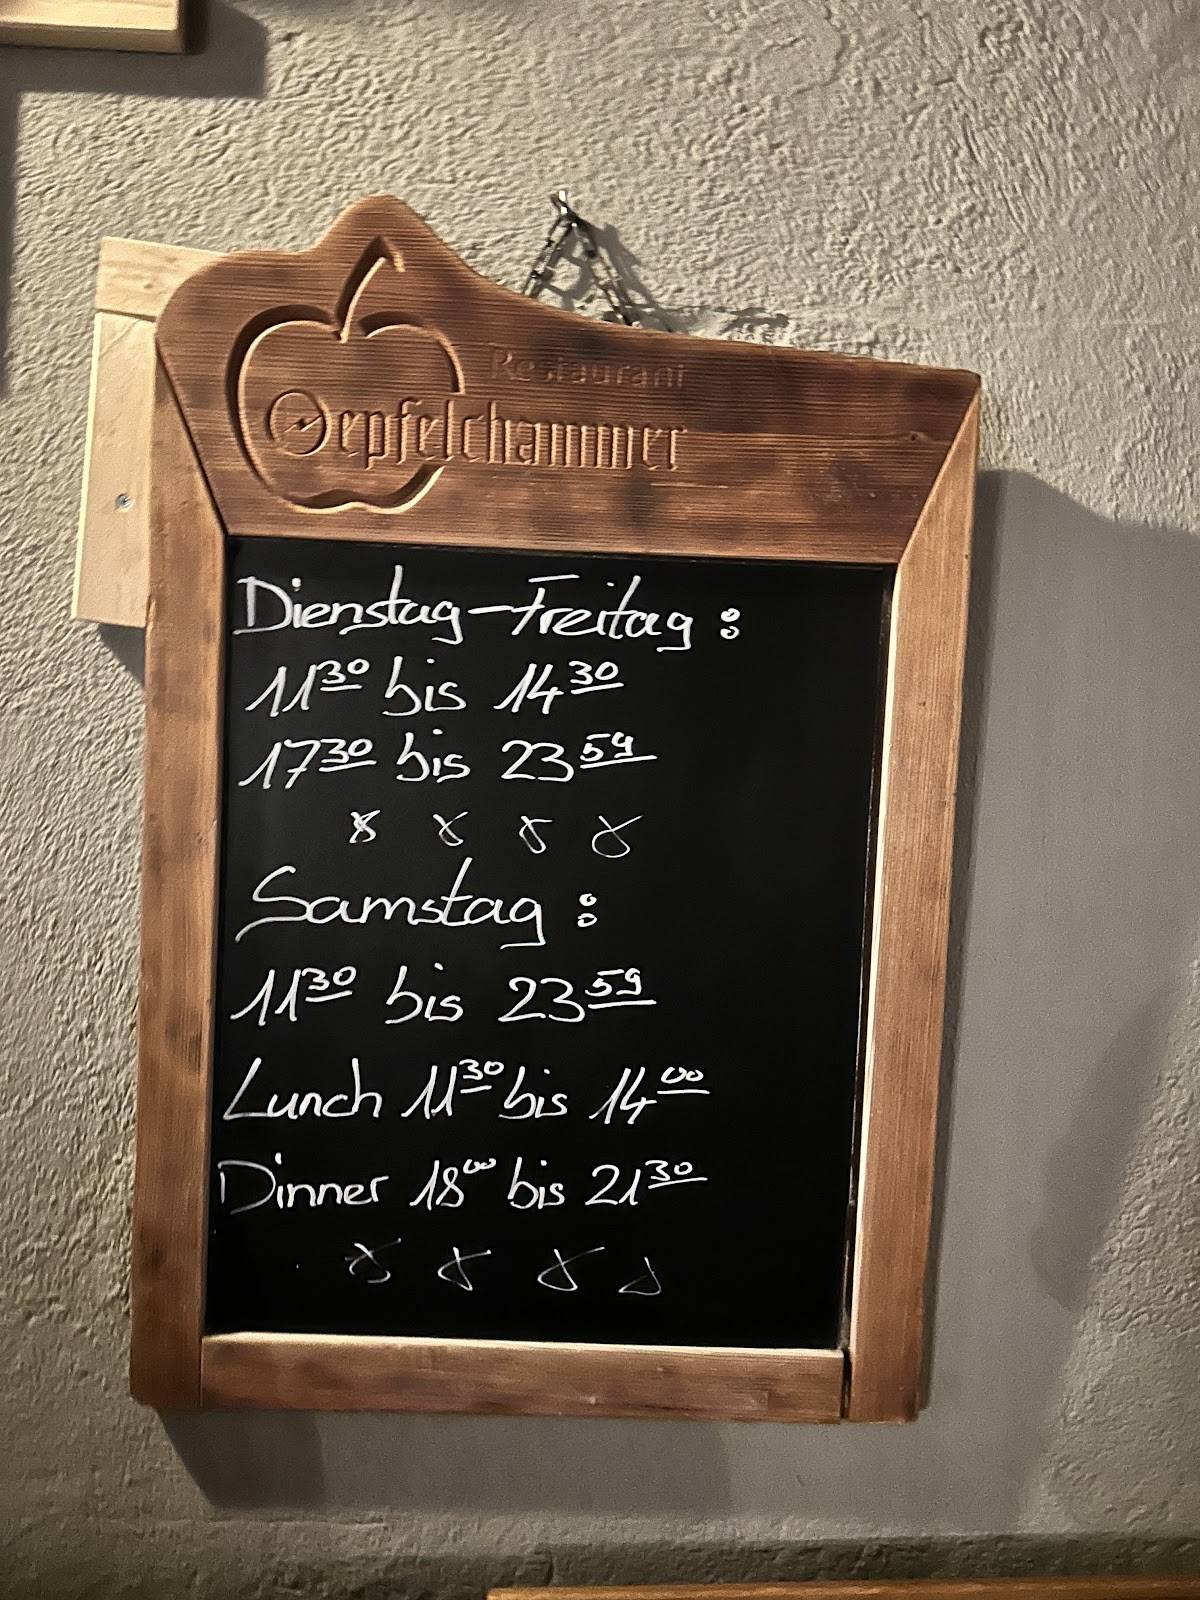 Restaurant
Oepfelchammer
Dienstag-Freitag:
11³⁰ bis 14³⁰
17³⁰ bis 23⁵⁹
Samstag:
11³⁰ bis 23⁵⁹
Lunch 11³⁰ bis 14⁰⁰
Dinner 18⁰⁰ bis 21³⁰